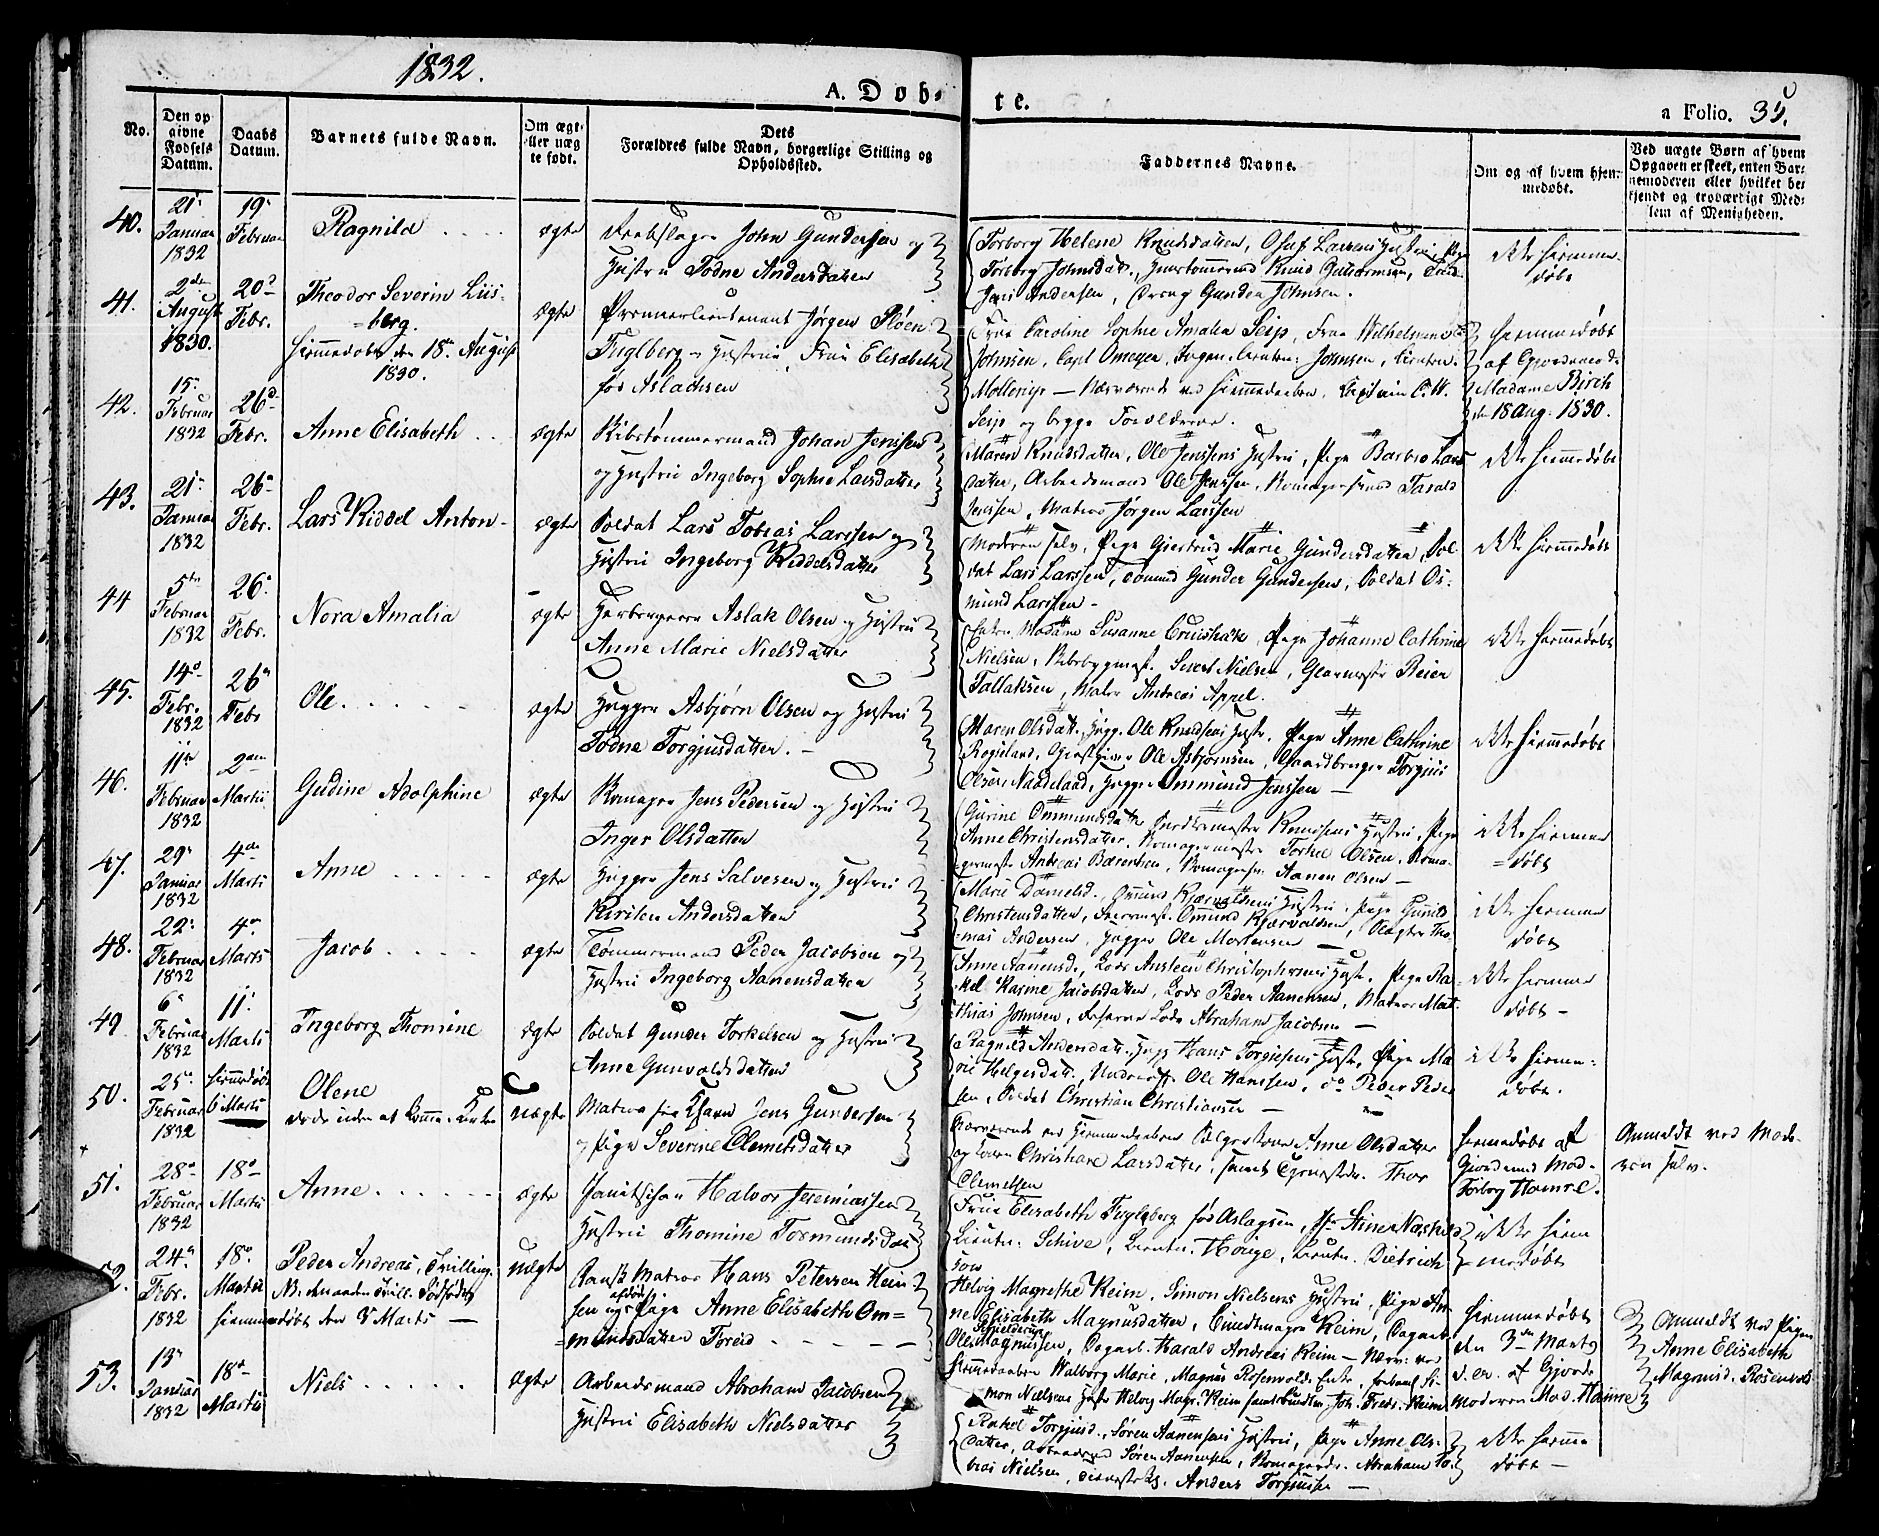 1832.
A. Døb-
te.
a Folio. 35.
No.
Den op
givne
Fødsels
Datum.
Daabs
Datum.
Barnets fulde Navn.
Om ægt-
eller uæg
te født.
Dets
Forældres fulde Navn, borgerlige Stilling og
Opholdssted.
Faddernes Navne.
Om og af hvem hjem-
medøbt.
Ved uægte Børn af hvem
Opgaven er skeet, enten Bar-
nemoderen eller hvilket be-
kjendt og troværdigt Med-
lem af Menigheden.
40.
21
Januar
1832
19
Februar
Ragnild
ægte
John Gundersen og
Hustru Todne Andersdatter
Torborg Helene Knudsdatter, Oluf Larsens Hustru, Pige
Torborg Johnsdatt., Knud Guttormsen,
Jens Andersen, Dreng Gunder Johnsen.
ikke hiemme
døbt
41.
2den
August
1830.
20d
Febr.
Theodor Severin Liis-
berg.
hiemmedøbt den 18de August
1830.
ægte
Premierlieutenant Jørgen Pløen
Fuglberg og Hustrue, Frue Elisabeth
fød Aslachsen
Frue Caroline Sophie Amalia Seip, Frue Wilhelmine
Johnsen, Capt Omeyer, Ingen. Lieuten: Johnsen, Lieuten.
Mollerup — Nærværende ved Hiemmedaaben, Capitain C. W.
Seip og begge Forældrene.
hiemmedøbt
af Gjordemod.
Madame Birch
d. 18 Aug. 1830.
42.
15
Februar
1832
26d
Febr.
Anne Elisabeth
ægte
Skibstømmermand Johan Jenssen
og Hustru Ingeborg Sophie Larsdatter
Maren Knudsdatter, Ole Jenssens Hustru, Pige Barbro Lars
datter, Arbeidsmand Ole Jenssen, Tarald
Jenssen, Matros Jørgen Larssen
ikke hiemmedøbt
43.
21
Januar
1832
26
Febr.
Lars Kiddel Anton
ægte
Soldat Lars Tobias Larssen og
Hustru Ingeborg Kiddelsdatter
Moderen selv, Pige Giertrud Marie Gundersdatter, Sol-
dat Lars Larssen, Gunder Gundersen, Soldat Os-
mund Larssen
ikke hiemmedøbt
44
5te
Februar
1832
26
Febr.
Nora Amalia
ægte
Aslak Olsen og Hustru
Anne Marie Nielsdatter
Enken Madame Susanne Cruishank, Pige Johanne Cathrine
Nielsen, Skibsbygmest. Sivert Nielsen, Glarmester Reier
Tallaksen, Maler Andreas Appel.
ikke hiemmedøbt
45.
14
Febr.
1832
26
Febr
Ole
ægte
Hugger Asbjørn Olsen og Hustru
Todne Torgjusdatter.
Maren Olsdatt., Hugg. Ole Knudsens Hustr., Pige Anne Cathrine
Rogieland, Giestgiver Ole Asbjørnsen, Gaardbruger Torgjus
Olsen Naddeland, Hugger Ommund Jenssen
ikke hiemmedøbt
46.
11te
Februar
1832
2den
Marti
Gudine Adolphine
ægte
Jens Pedersen og Hustru
Inger Olsdatter
Gurine Ommundsdatter, Knudsens Hustru, Pige
Anne Christensdatter, Torkel Olsen,
Andreas Bærentsen, Aanen Olsen
ikke hiemme
døbt
47.
29
Januar
1832
4de
Marts
Anne
ægte
Hugger Jens Salvesen og Hustru
Kirsten Andersdatter
Marie Danielsd., Omund Kjærvaldsens Hustru, Pige Gunild
Christensdatter, Omund Kjærvaldsen, Tho-
mas Andersen, Hugger Ole Mortensen
ikke hiemme
døbt
48.
22
Februar
1832
4
Marts
Jacob
ægte
Tømmermand Peder Jacobsen og
Hustru Ingeborg Aanensdatter
Anne Aanensd., Lods Ansteen Christophersens Hust., Pige Ra-
kel Karine Jacobsdatter, Lods Peder Aanensen, Matros Mat-
thias Johnsen, Lods Abraham Jacobsen
ikke hiemme
døbt
49
6
Februar
1832
11
Marts
Ingeborg Thomine
ægte
Soldat Gunder Torkelsen og Hustru
Anne Gunvoldsdatter
Ragnild Andersdatt., Hugg Hans Torgiusens Hust., Pige Ma-
rie Helgesdatt., Underoff Ole Hanssen, do Peder Peder
sen, Soldat Christian Christiansen
ikke hiemme-
døbt.
50.
25
Februar
1832
hiemmedøbt
6 Marts
Olene
døde uden at komme i Kirke
uægte
Matros Jens Gundersen
og Pige Severine Clemetsdatter
Nærværende ved Hiemmedaaben Anne Olsdatter
og Christiane Larsdatter, samt Thor
Clemetsen
hiemmedøbt af
Gjordemod Mad.
Torborg Hamre.
Anmeldt ved Mode-
ren selv.
51.
28
Februar
1832
18
Martii
Anne
ægte
Halvor Jeremiassen
Hustru Thomine Tormundsdat
Frue Elisabeth Fuglberg fød Aslagsen, Stine
Lieutn: Schive, Lieutn: Houge, Lieutn: Diedrich
son
ikke hiem
medøbt
52.
24
Febr.
1832
18
Marti
Peder Andreas, Tvilling.
NB. den anden Tvill. Dødfødt
hiemmedøbt den 3 Marts
uægte
Dansk Matros Hans Petersen Hein-
sen og Pige Anne Elisabeth Om-
mundsdatter Toreid
Helvig Magrethe Reim, Simon Nielsens Hustru, Pige An-
ne Elisabeth Magnusdatter, Reim, Dagarb.
Ole Magnussen, Dagarb. Harald Andreas Reim — Nærv: ved
Hiemmedaaben Walborg Marie, Magnus Rosenvolds Enke, Si-
mon Nielsens Hust Helvig Magr. Reim samt Joh. Fredr. Reim
hiemmedøbt
den 3de Marts
af Gjorde
moderen Mad. Hamre
Anmeldt ved Pigen
Anne Elisabeth
Magnusd. Rosenvold
53.
13
Januar
1832
18de
Martii
Niels
ægte
Arbeidsmand Abraham Jacobsen
Hustru Elisabeth Nielsdatter
Rakel Torgjusd., Søren Aanensens Hustru, Pige Anne Ols-
datter, Søren Aanensen, Abraham To-
bias Nielsen, Anders Torgjusen
ikke hiemme
døbt